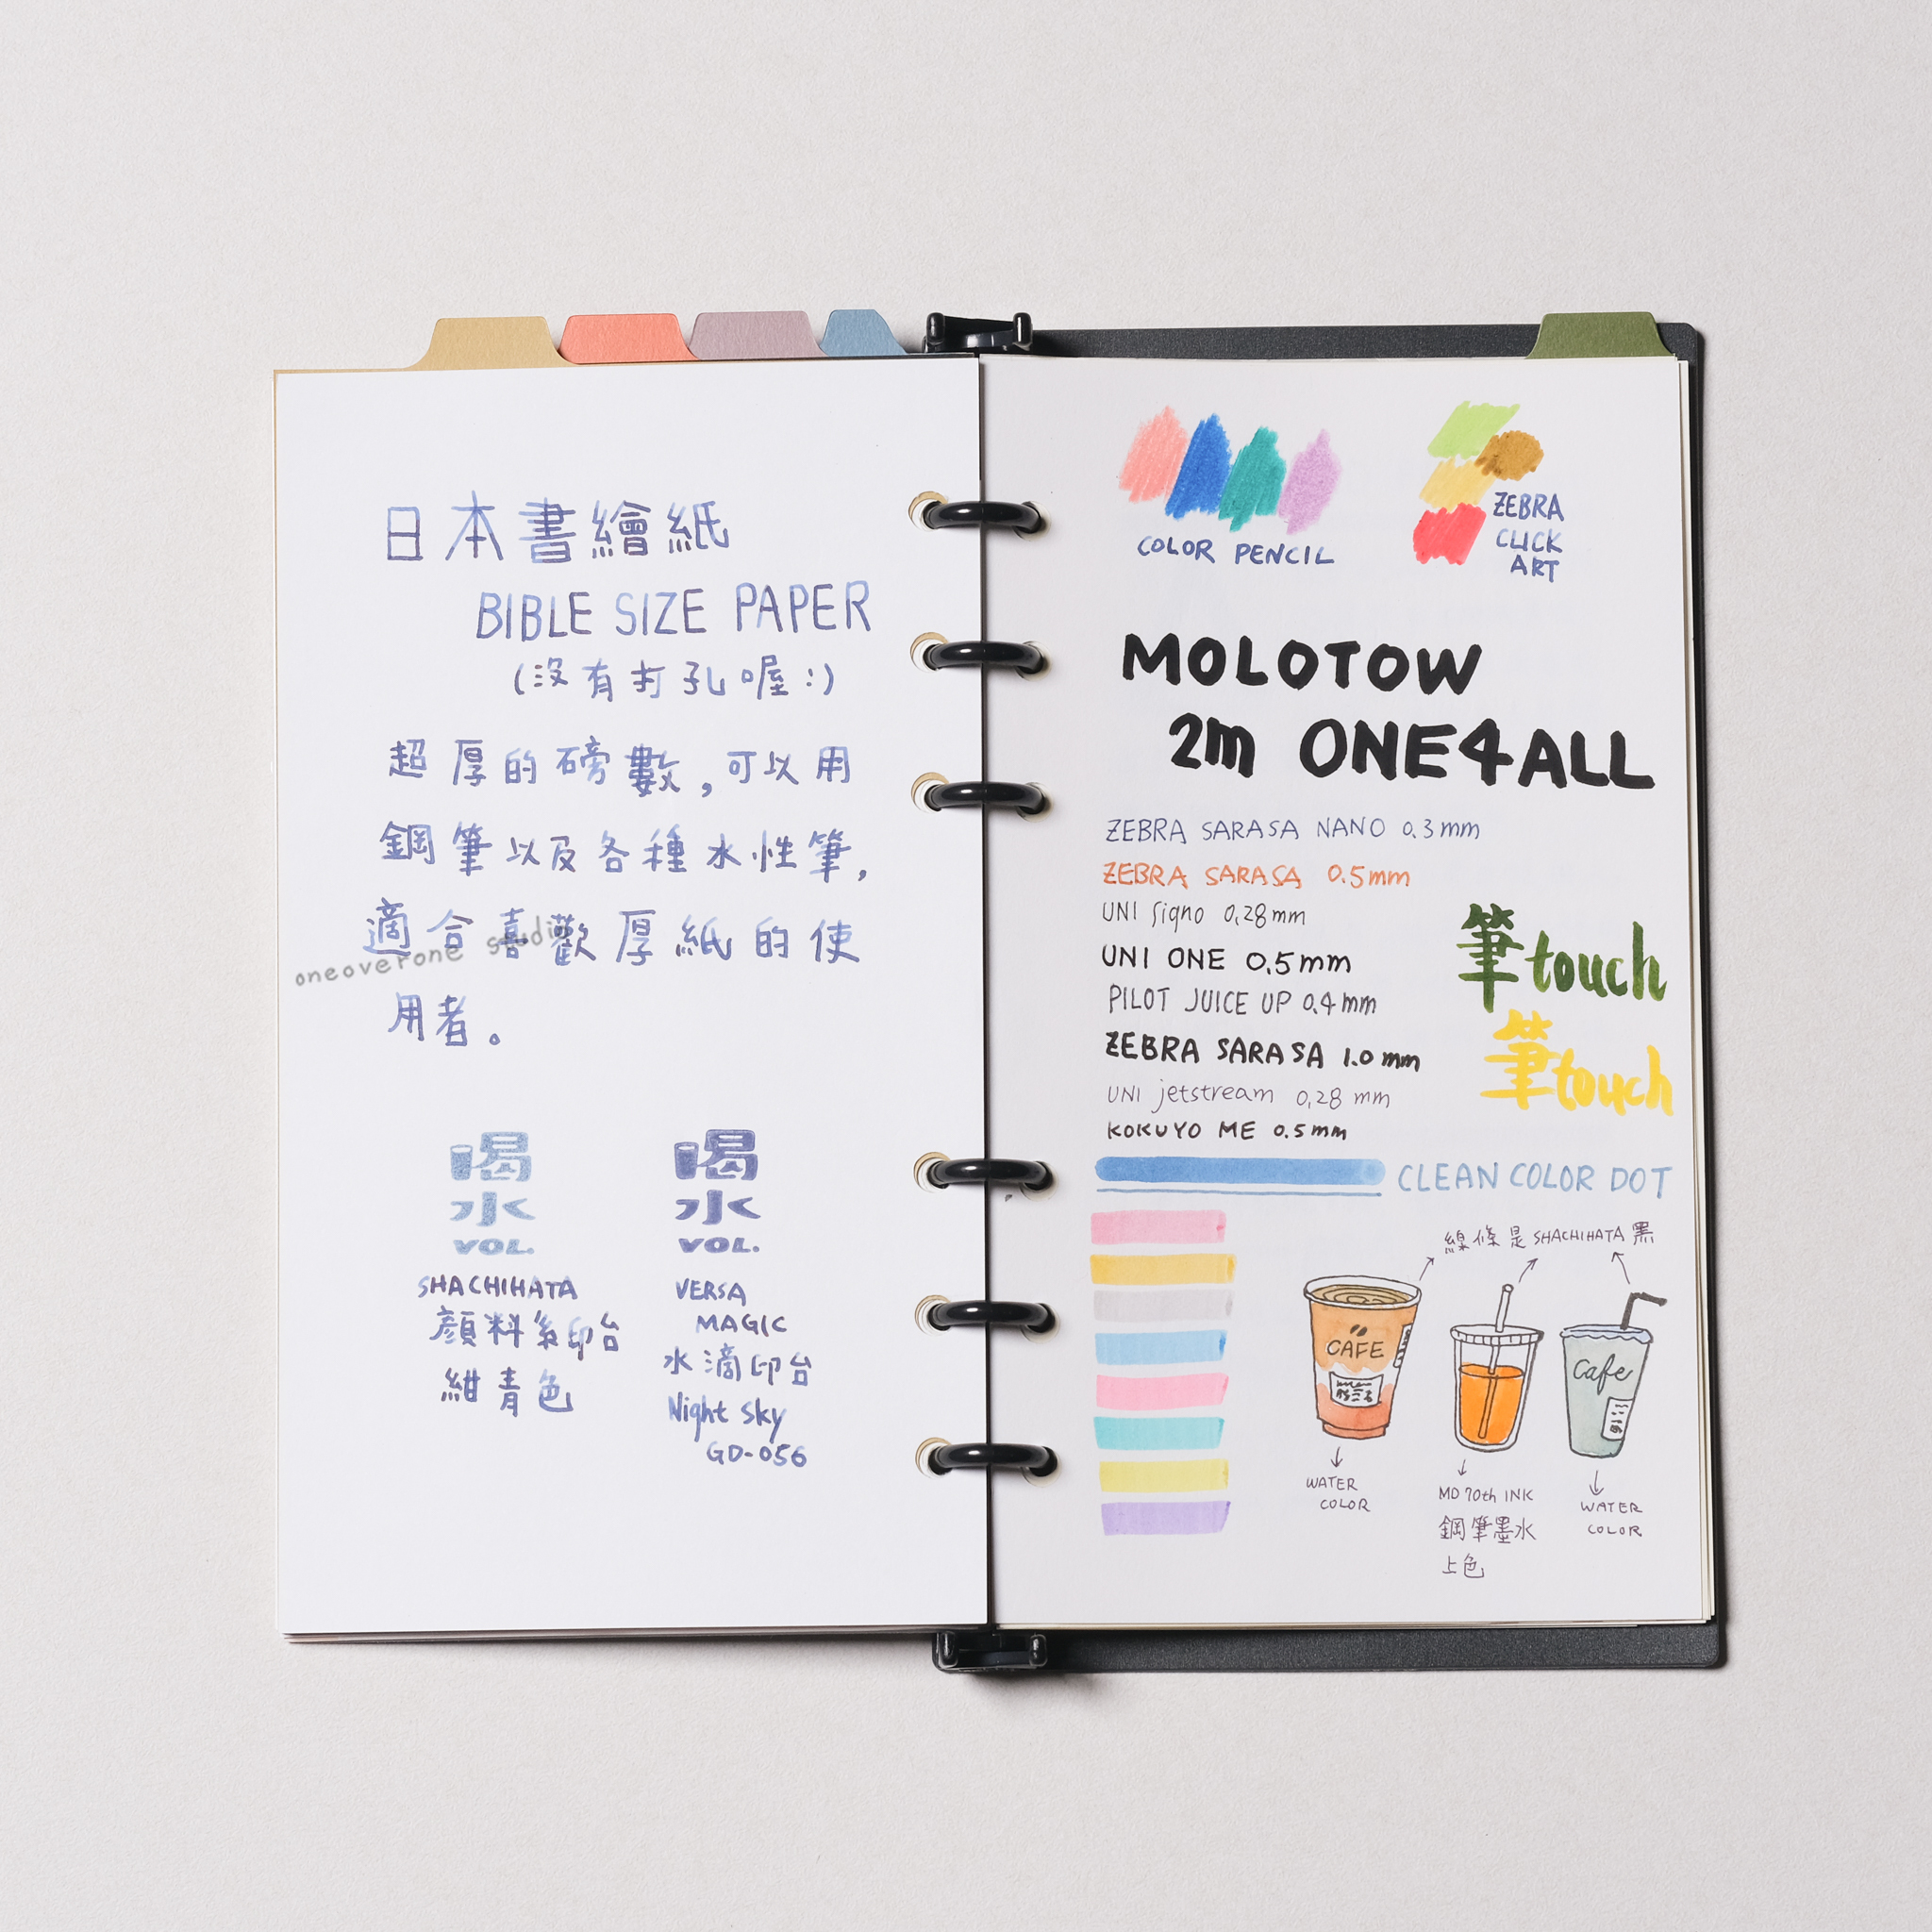 日本書繪紙
BIBLE SIZE PAPER
(沒有打孔喔:)
超厚的磅數,可以用
鋼筆以及各種水性筆,
適合喜歡厚紙的使
用者。
oneoverone studio
喝
水
VOL.
SHACHIHATA
顏料系印台
紺青色
喝
水
VOL.
VERSA
MAGIC
水滴印台
Night Sky
GD-056
COLOR PENCIL
ZEBRA
CLICK
ART
MOLOTOW
2m ONE4ALL
ZEBRA SARASA NANO 0.3mm
ZEBRA SARASA 0.5mm
UNI Signo 0.28mm
UNI ONE 0.5mm
PILOT JUICE UP 0.4mm
ZEBRA SARASA 1.0mm
UNI jetstream 0.28 mm
KOKUYO ME 0.5mm
筆touch
筆touch
CLEAN COLOR DOT
線條是SHACHIHATA黑
CAFE
Cafe
WATER
COLOR
MD 70th INK
鋼筆墨水
上色
WATER
COLOR